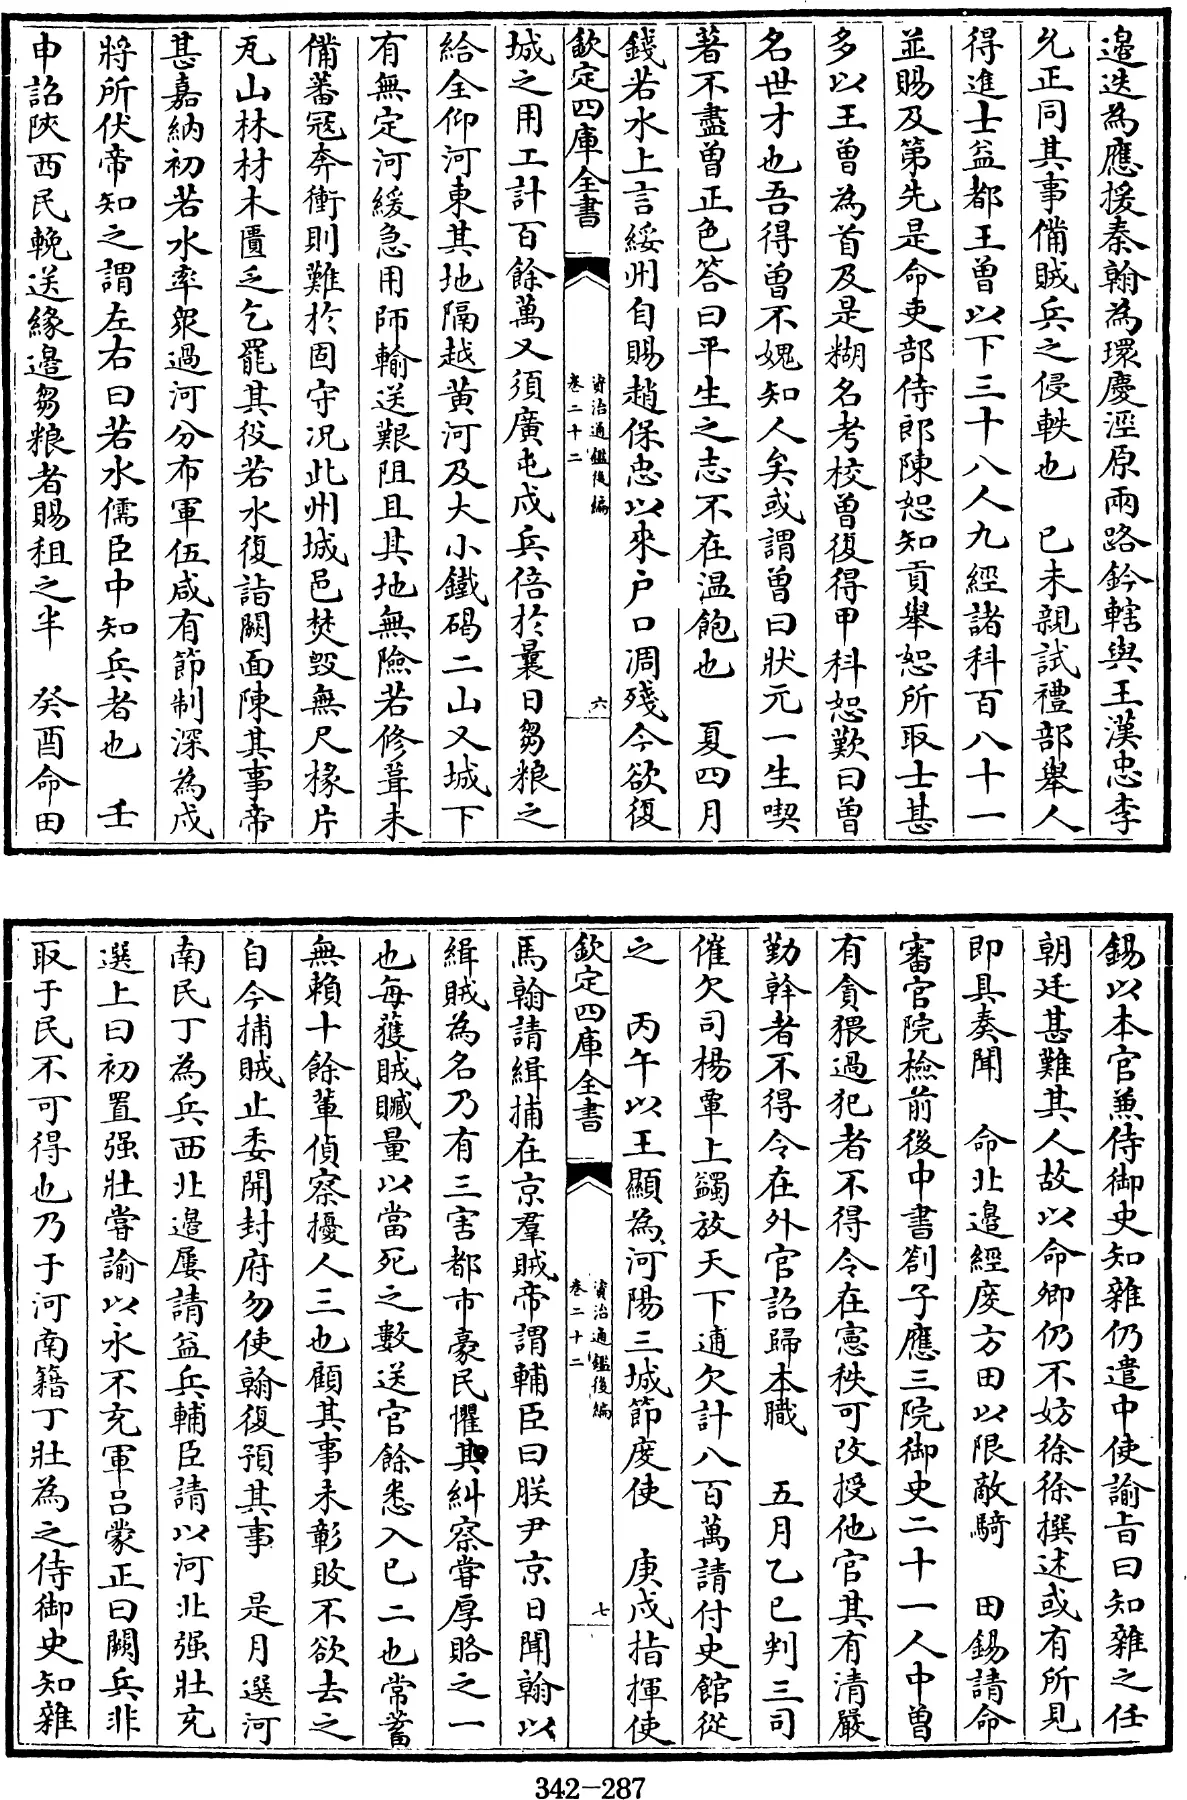 邉迭為應援秦翰為環慶涇原兩路鈐轄與王漢忠李
允正同其事備賊兵之侵軼也　已未親試禮部舉人
得進士益都王曾以下三十八人九經諸科百八十一
並賜及第先是命吏部侍郎陳恕知貢舉恕所取士甚
多以王曾為首及是糊名考校曾復得甲科恕歎曰曾
名世才也吾得曾不媿知人矣或謂曾曰狀元一生喫
著不盡曾正色答曰平生之志不在温飽也　夏四月
錢若水上言綏州自賜趙保忠以來户口凋殘今欲復
欽定四庫全書
資治通鑑後編
卷二十二
六
城之用工計百餘萬又須廣屯戍兵倍於曩日芻粮之
給全仰河東其地隔越黄河及大小鐵碣二山又城下
有無定河緩急用師輸送艱阻且其地無險若修葺未
備蕃冦奔衝則難於固守况此州城邑焚毁無尺椽片
瓦山林材木匱乏乞罷其役若水復詣闕面陳其事帝
甚嘉納初若水率衆過河分布軍伍咸有節制深為戍
將所伏帝知之謂左右曰若水儒臣中知兵者也　壬
申詔陜西民輓送緣邉芻粮者賜租之半　癸酉命田
錫以本官兼侍御史知雜仍遣中使諭旨曰知雜之任
朝廷甚難其人故以命卿仍不妨徐徐撰述或有所見
即具奏聞　命北邉經度方田以限敵騎　田錫請命
審官院檢前後中書劄子應三院御史二十一人中曽
有貪猥過犯者不得令在憲秩可改授他官其有清嚴
勤幹者不得令在外官詔歸本職　五月乙巳判三司
催欠司楊覃上蠲放天下逋欠計八百萬請付史館從
之　丙午以王顯為河陽三城節度使　庚戌指揮使
欽定四庫全書
資治通鑑後編
卷二十二
七
馬翰請緝捕在京羣賊帝謂輔臣曰朕尹京日聞翰以
緝賊為名乃有三害都市豪民懼其糾察嘗厚賂之一
也每獲賊贓量以當死之數送官餘悉入已二也常蓄
無賴十餘輩偵察擾人三也顧其事未彰敗不欲去之
自今捕賊止委開封府勿使翰復預其事　是月選河
南民丁為兵西北邉屢請益兵輔臣請以河北强壯充
選上曰初置强壯嘗諭以永不充軍吕蒙正曰闕兵非
取于民不可得也乃于河南籍丁壯為之侍御史知雜
342-287